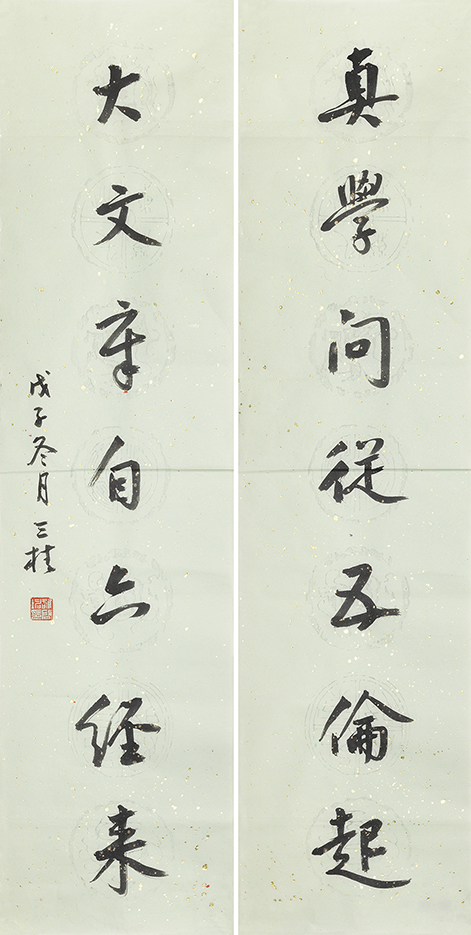 真學问從五倫起
大文章自六经来
戊子冬月 三桂